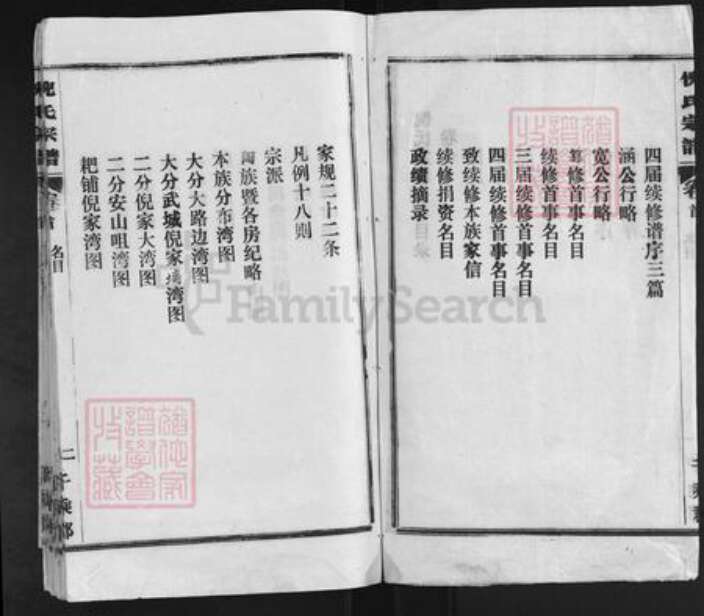 四届续修谱序三篇
涵公行略
宽公行略
修首事名目
续修首事名目
三届续修首事名目
四届续修首事名目
致续修本族家信
续修捐资名目
政绩摘录
家规二十二条
凡例十八则
宗派
族暨各房纪略
本族分布湾图
大分大路边湾图
大分武城倪家湾图
二分倪家大湾图
二分安山咀湾图
耙铺倪家湾图
倪氏宗谱
卷首
名目
二
千乘郡
倪氏宗谱
卷首
FamilySearch